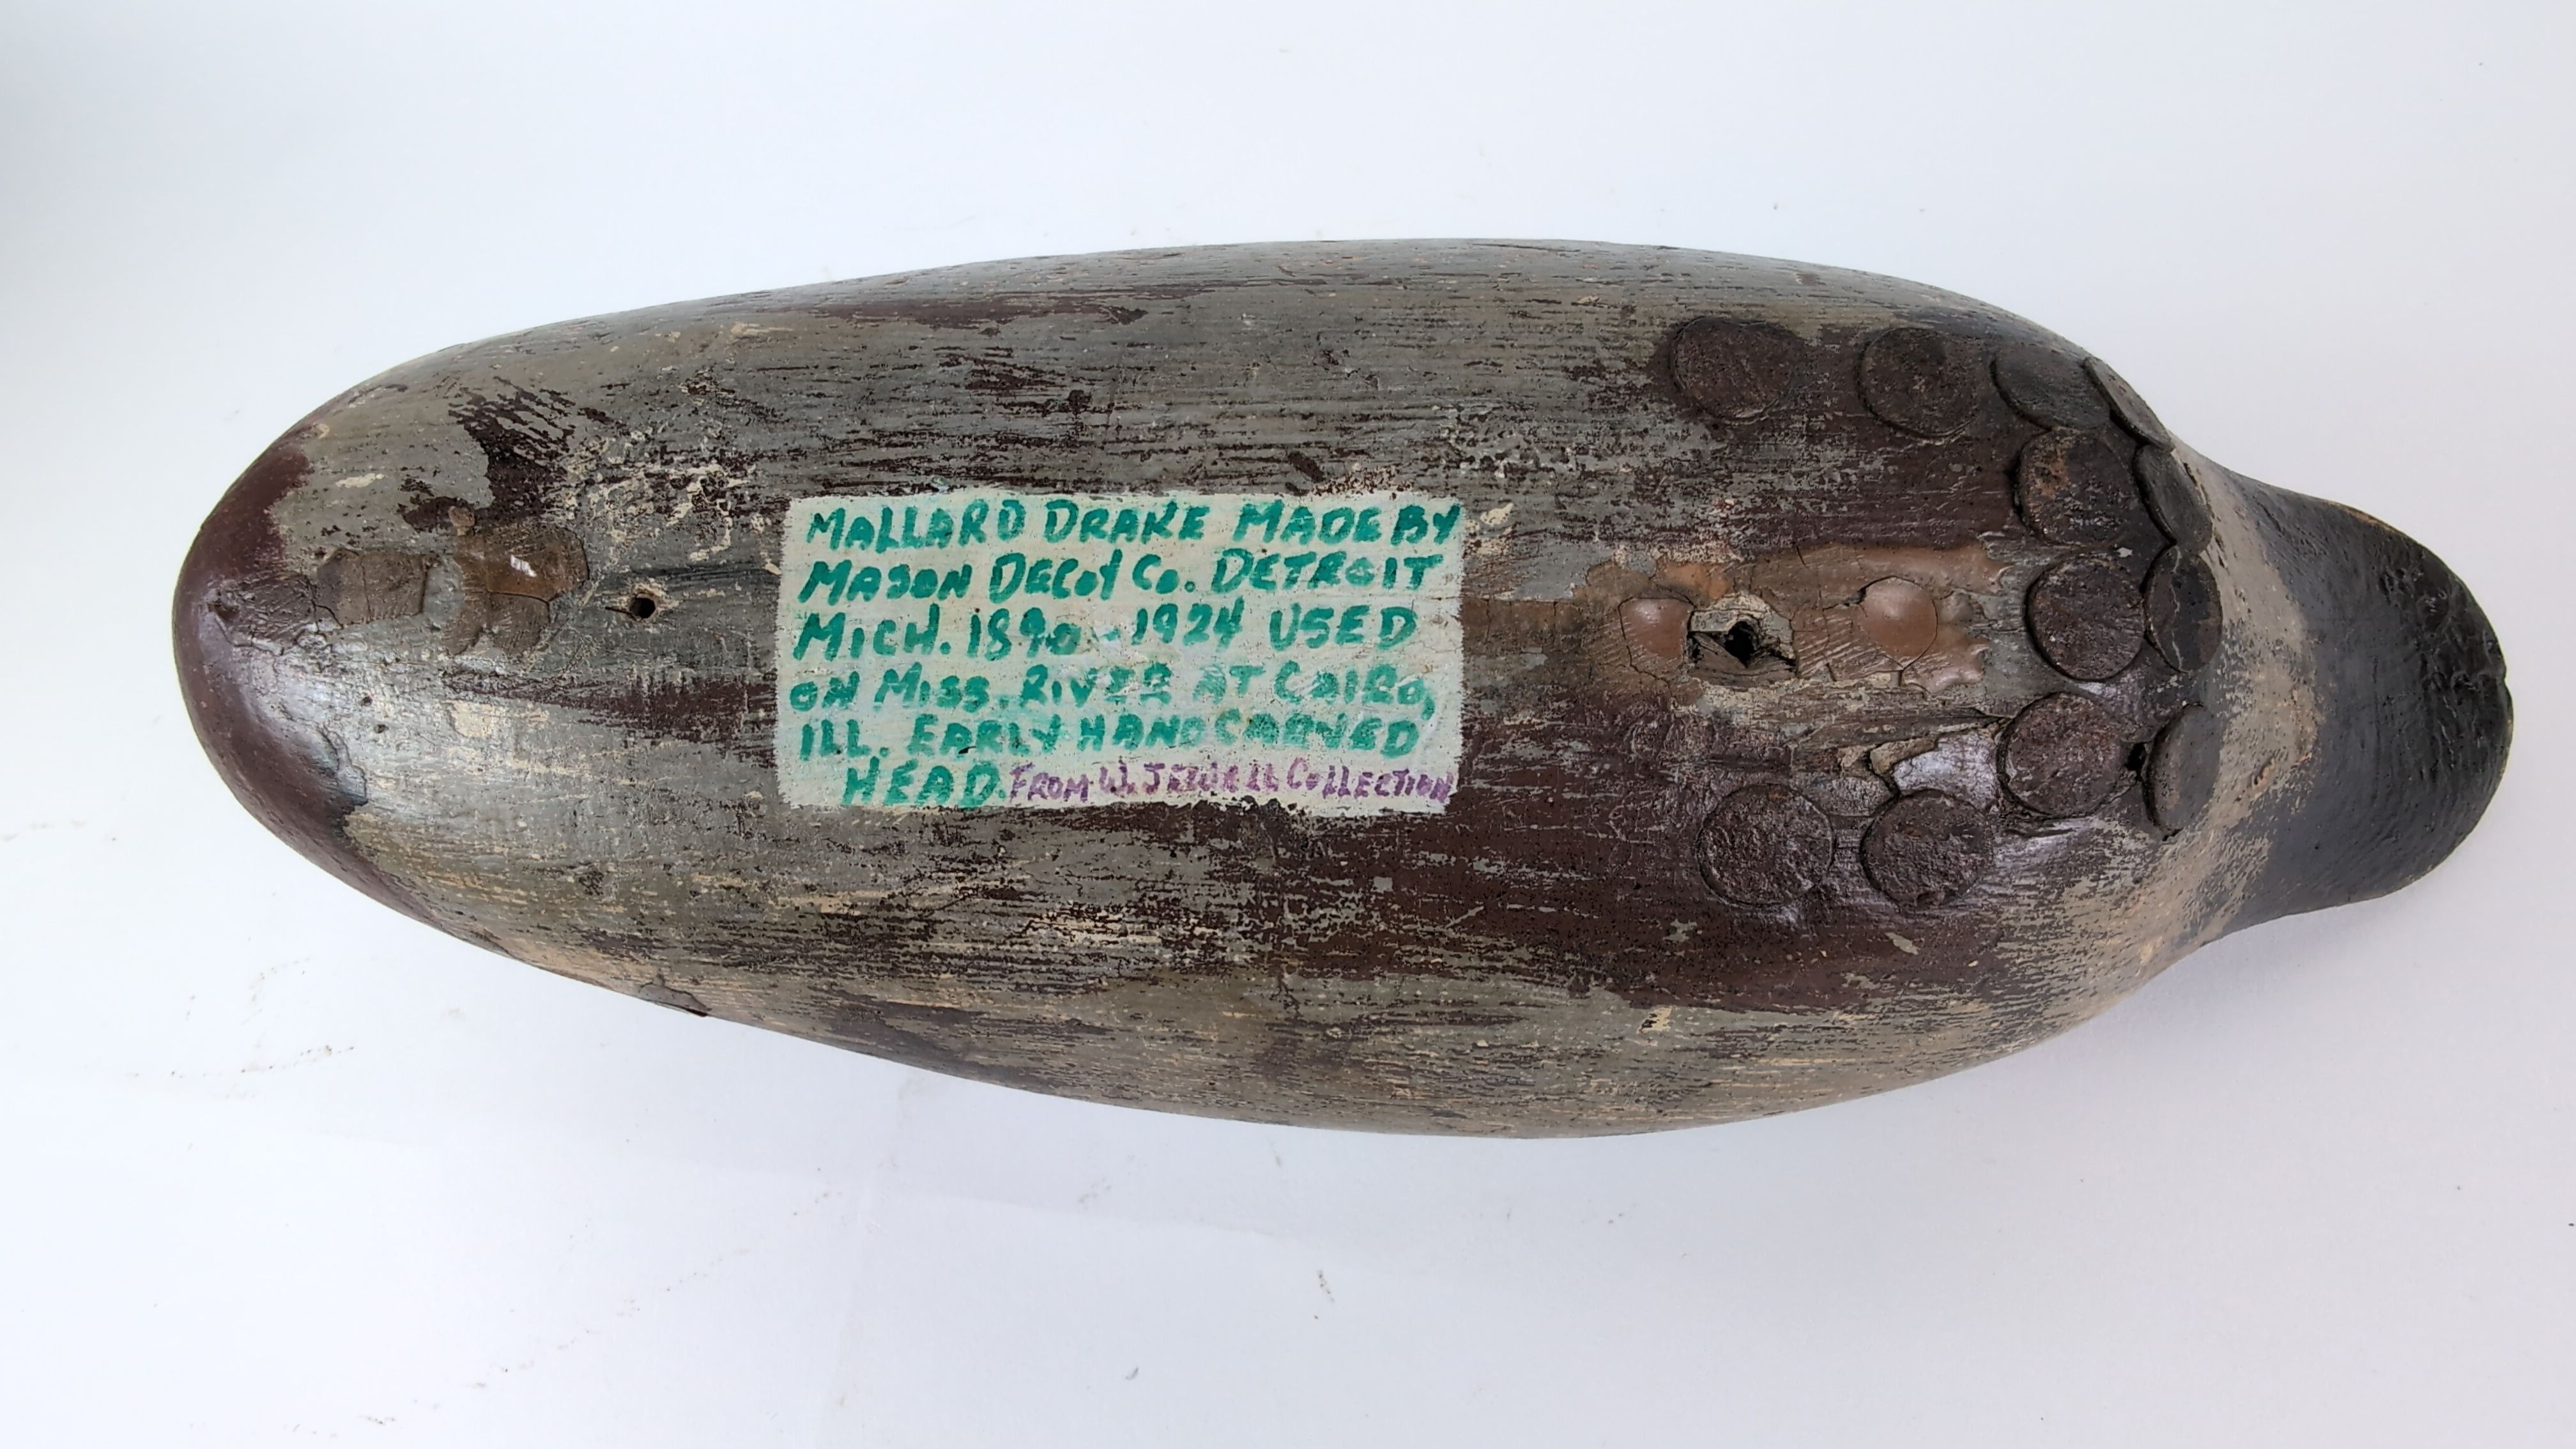 MALLARD DRAKE MADE BY
MASON DECOY CO. DETROIT
MICH. 1890 - 1924 USED
ON MISS. RIVER AT CAIRO,
ILL. EARLY HAND CARVED
HEAD. FROM W. JEWELL COLLECTION